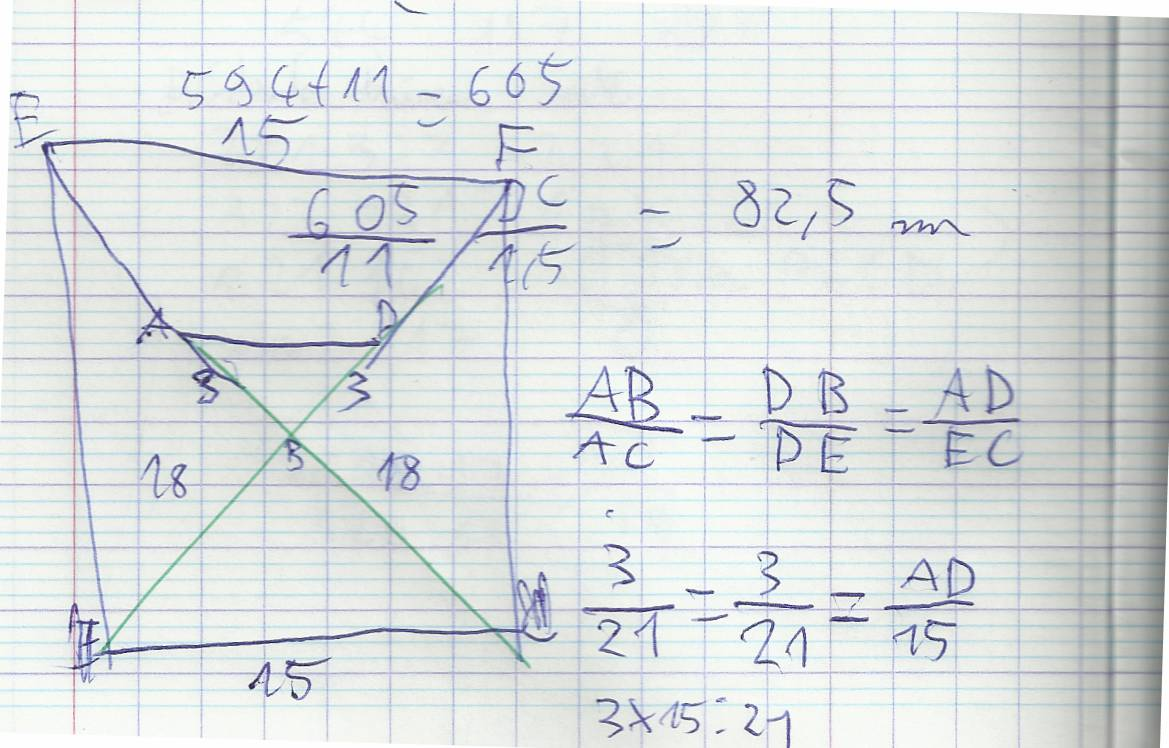 594+11 = 605
E 15 F
605/11 DC/1,5 = 82,5 mm
A D
3 3
AB/AC = DB/DE = AD/EC
B
18 18
3/21 = 3/21 = AD/15
15
3×15:21